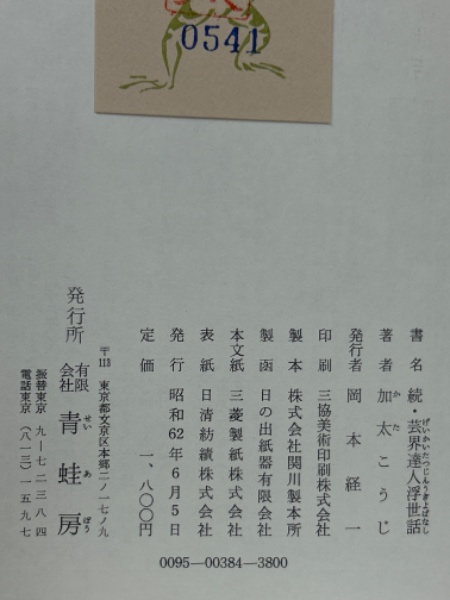 0541
書名 続・芸界達人浮世話
げいかいたつじんうきよばなし
著者 加太こうじ
かた
発行者 岡本経一
印刷 三協美術印刷株式会社
製本 株式会社関川製本所
製函 日の出紙器有限会社
本文紙 三菱製紙株式会社
表紙 日清紡績株式会社
発行 昭和62年6月5日
定価 一、八〇〇円
〒113 東京都文京区本郷二ノ一七ノ九
発行所 有限会社 青蛙房
せいあぼう
振替東京 九―七二三八四
電話東京 (八一三) 一五九七
0095―00384―3800